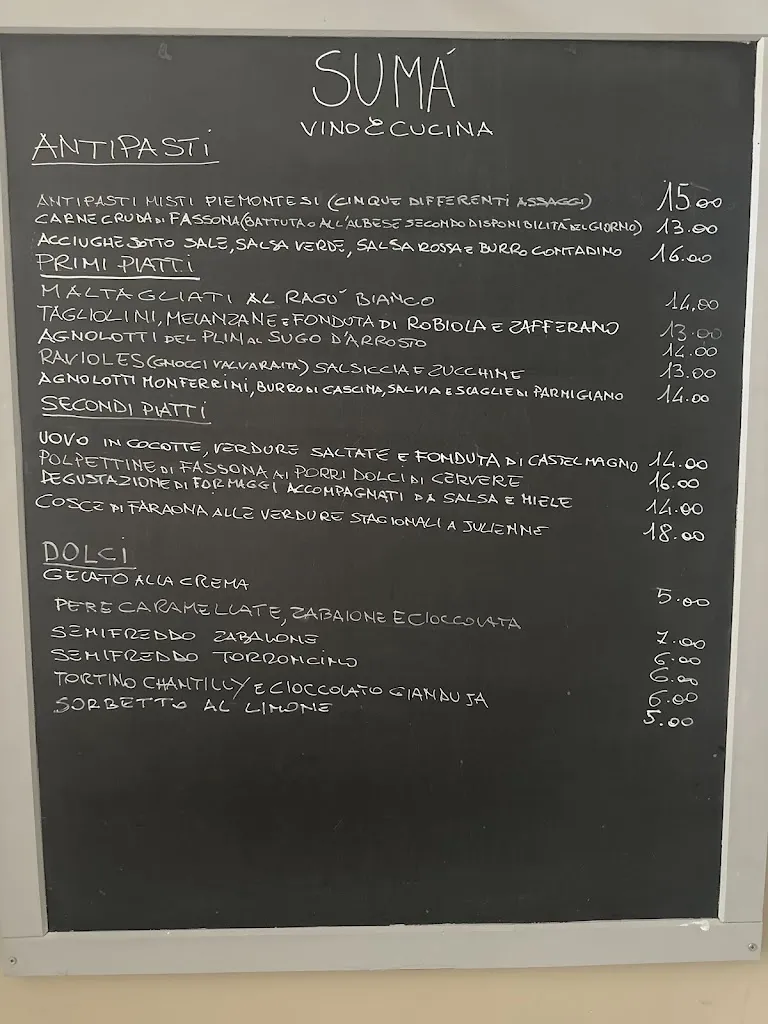 SUMÁ
VINO & CUCINA
ANTIPASTI
ANTIPASTI MISTI PIEMONTESI (CINQUE DIFFERENTI ASSAGGI) 15.00
CARNE CRUDA DI FASSONA (BATTUTA O ALL'ALBESE SECONDO DISPONIBILITÀ DEL GIORNO) 13.00
ACCIUGHE SOTTO SALE, SALSA VERDE, SALSA ROSSA E BURRO CONTADINO 16.00
PRIMI PIATTI
MALTAGLIATI AL RAGU' BIANCO 14,00
TAGLIOLINI, MELANZANE E FONDUTA DI ROBIOLA E ZAFFERANO 13.00
AGNOLOTTI DEL PLIN AL SUGO D'ARROSTO 14.00
RAVIOLES (GNOCCI VALVARAITA) SALSICCIA E ZUCCHINE 13.00
AGNOLOTTI MONFERRINI, BURRO DI CASCINA, SALVIA E SCAGLIE DI PARMIGIANO 14.00
SECONDI PIATTI
UOVO IN COCOTTE, VERDURE SALTATE E FONDUTA DI CASTELMAGNO 14.00
POLPETTINE DI FASSONA AI PORRI DOLCI DI CERVERE 16.00
DEGUSTAZIONE DI FORMAGGI ACCOMPAGNATI DA SALSA E MIELE 14.00
COSCE DI FARAONA ALLE VERDURE STAGIONALI A JULIENNE 18.00
DOLCI
GELATO ALLA CREMA 5.00
PERE CARAMELLATE, ZABAIONE E CIOCCOLATA 7.00
SEMIFREDDO ZABAIONE 6.00
SEMIFREDDO TORRONCINO 6.00
TORTINO CHANTILLY E CIOCCOLATO GIANDUJA 6.00
SORBETTO AL LIMONE 5.00